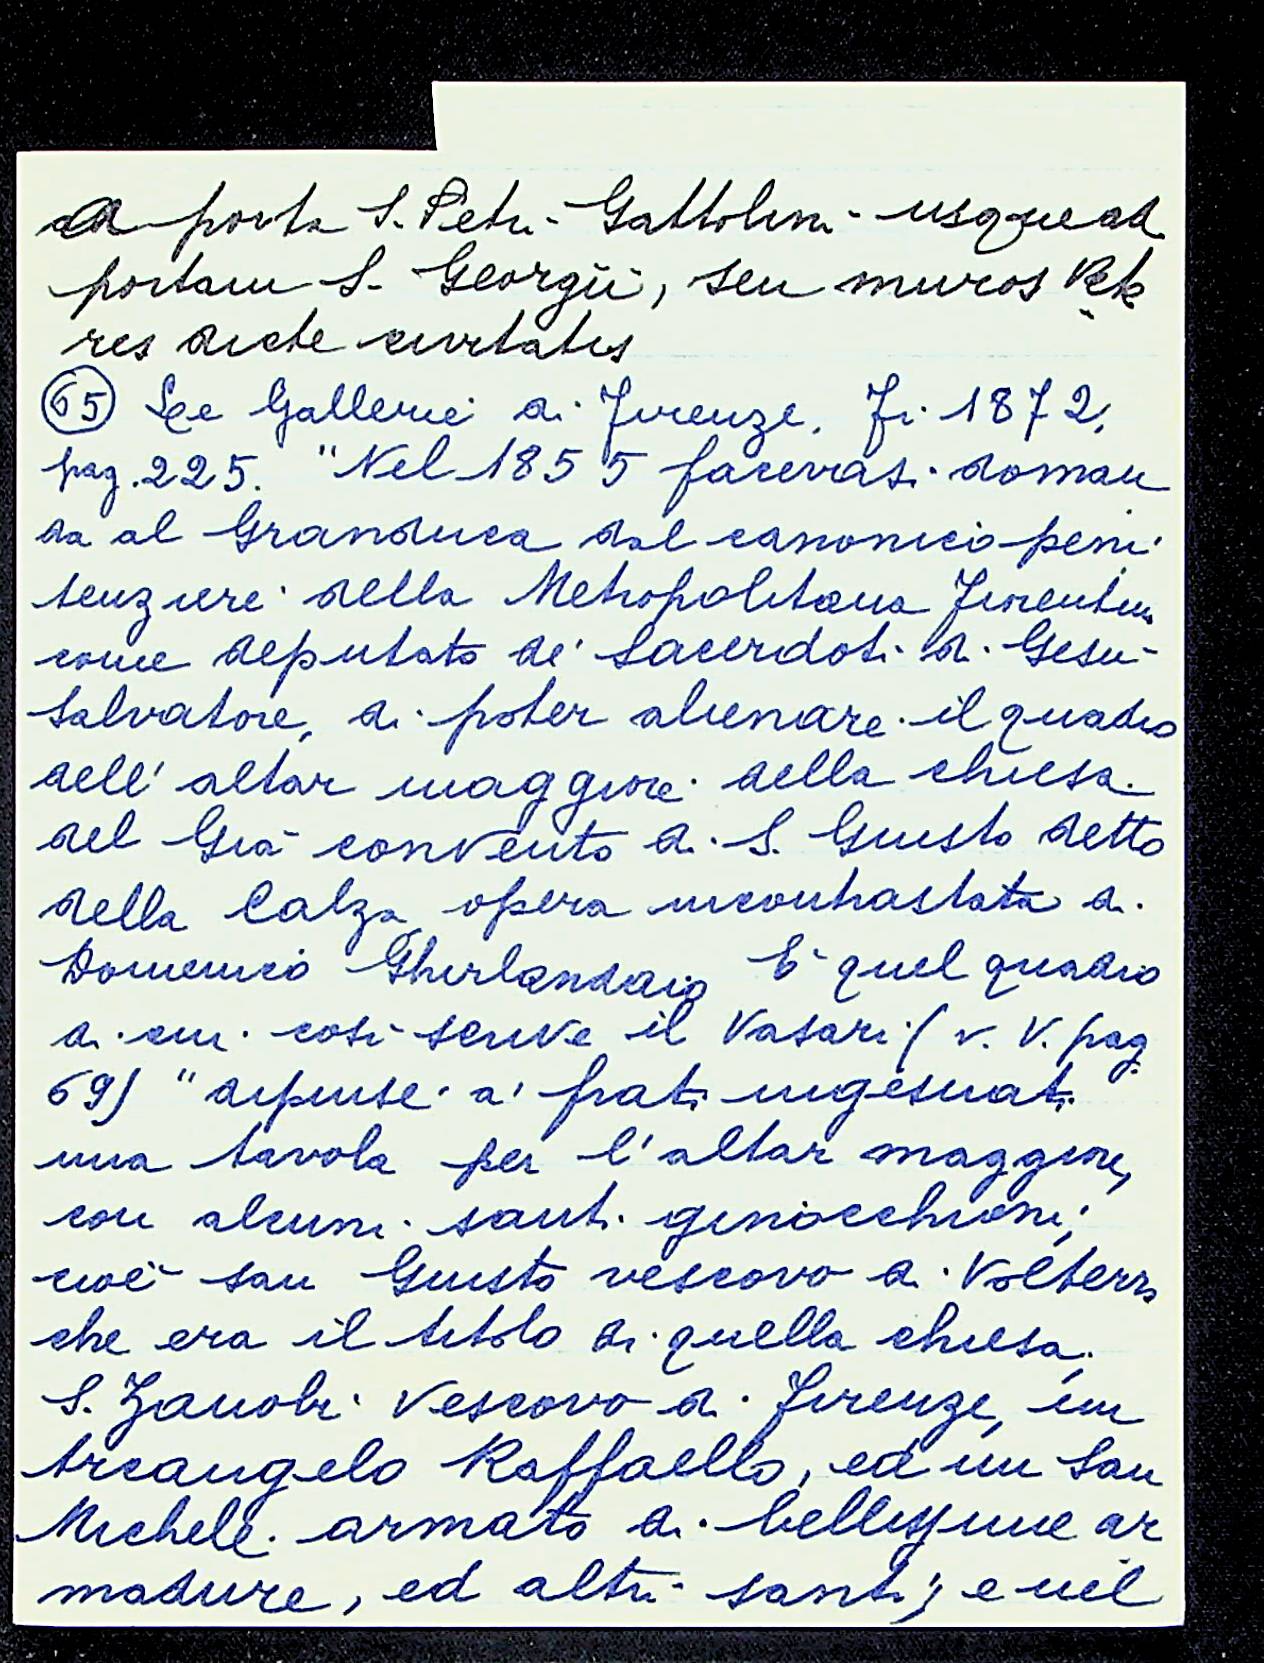 a porta S. Petri-Gattolini-usque ad
portam S. Georgii, seu muros Vete
res dicte civitatis
65 Le Gallerie di Firenze. Fi. 1872,
pag. 225. "Nel 1855 facevasi doman
da al Granduca dal canonico peni
tenziere della Metropolitana Fiorentina
come deputato de' Sacerdoti di Gesù
Salvatore, di poter alienare il quadro
dell'altar maggiore della chiesa
del Già convento di S. Giusto detto
della Calza, opera incontrastata di
Domenico Ghirlandaio E' quel quadro
di cui così scrive il Vasari (v. V. pag
69) "dipinse a' frati ingesuati
una tavola per l'altar maggiore,
con alcuni santi ginocchioni;
cioè san Giusto vescovo di Volterra
che era il titolo di quella chiesa,
S. Zanobi Vescovo di Firenze, un
Arcangelo Raffaello, ed un San
Michele armato di bellissime ar
madure, ed altri santi; e nel